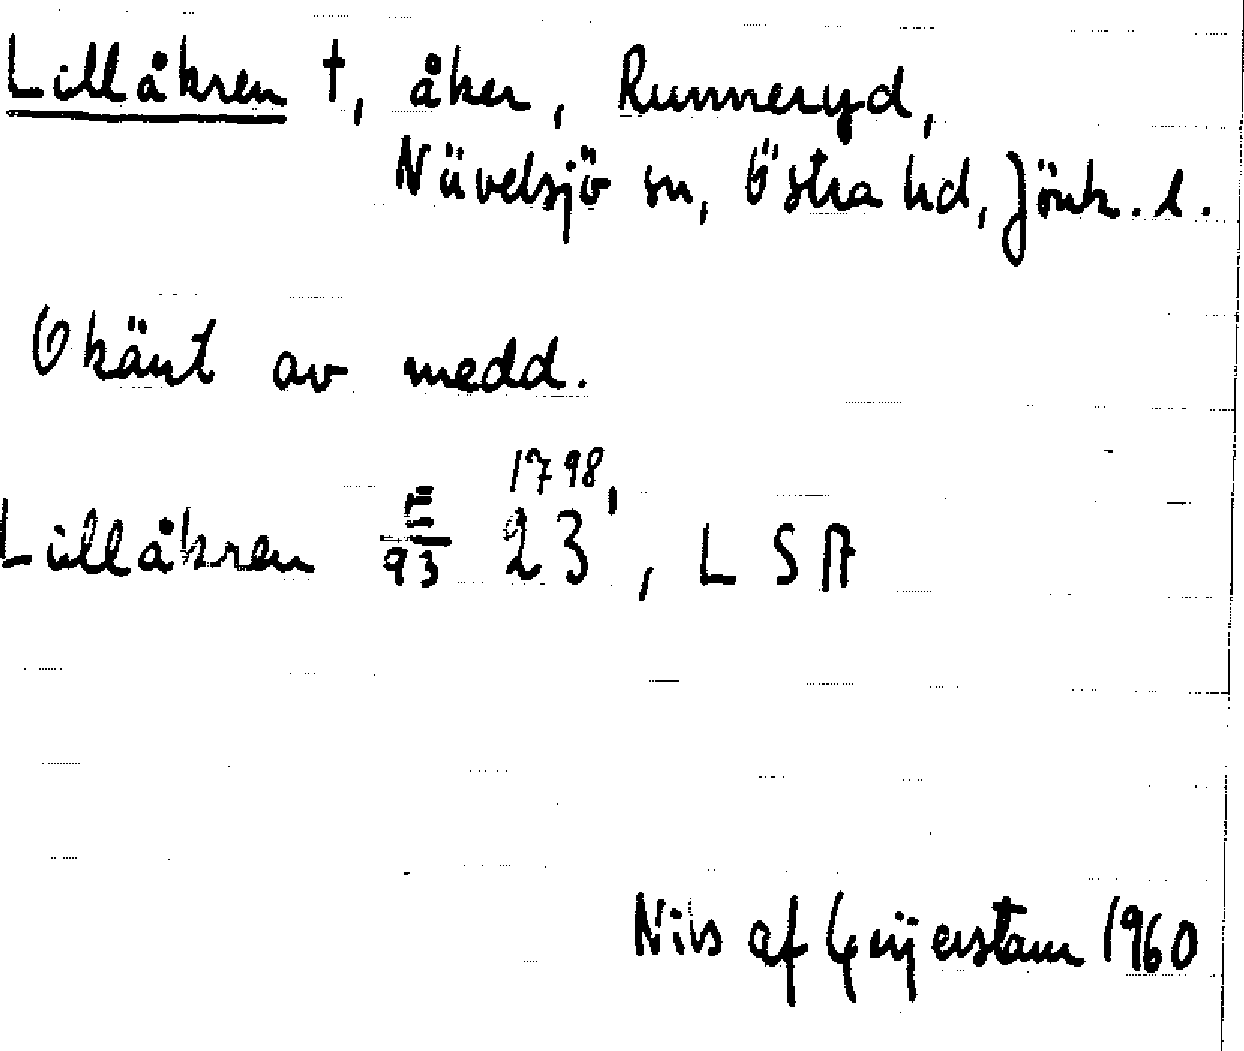 Lillåkren †, åker, Runneryd,
Nävelsjö sn, Östra hd, Jönk. l.
Okänt av medd.
1798,
Lillåkren E/93 23, LSA
Nils af Geijerstam 1960